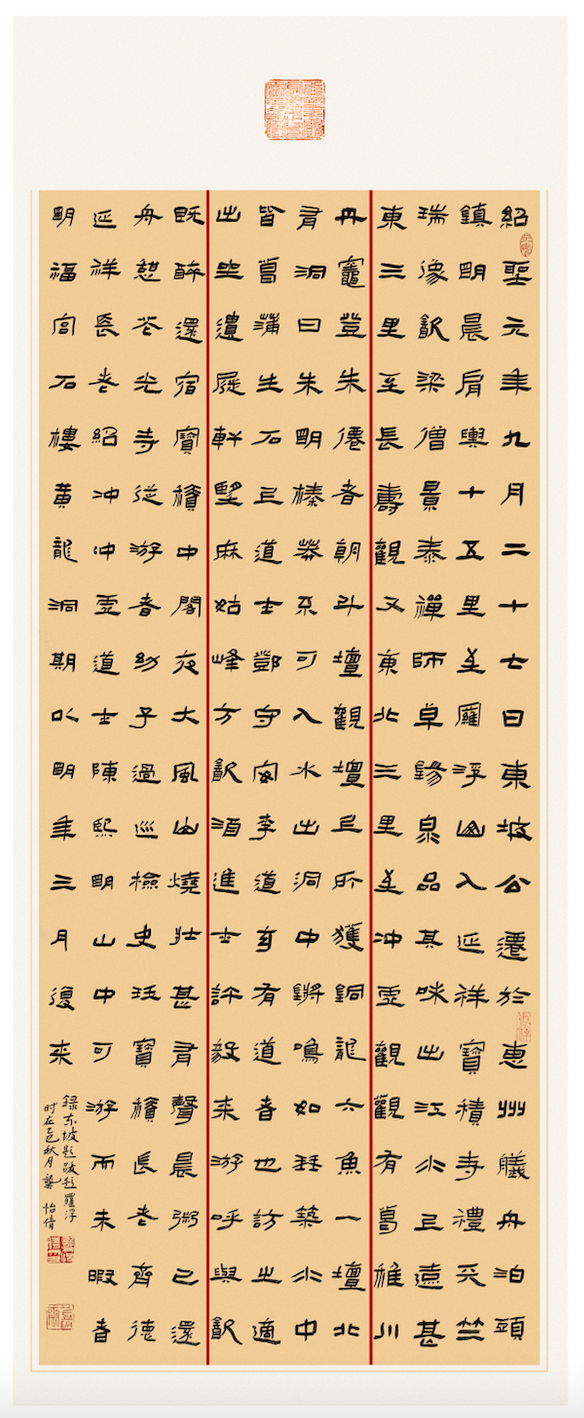 紹聖元年九月二十七日東坡公遷於惠州艤舟泊頭
鎮明晨肩輿十五里至羅浮山入延祥寶積寺禮天竺
瑞像飲梁僧景泰禪師卓錫泉品其味出江水上遠甚
東三里至長壽觀又東北三里至沖虛觀觀有葛稚川
丹竈登朱僊者朝斗壇觀壇上所獲銅龍六魚一壇北
有洞曰朱明榛莽不可入水出洞中鏘鳴如琴築水中
皆菖蒲生石上道士鄧守安李道玄有道者也訪之適
出坐遺屐軒望麻姑峰方飲酒進士許毅來游呼與飲
既醉還宿寶積中閣夜大風山燒壯甚有聲晨粥已還
舟憩花光寺從游者幼子過巡檢史珏寶積長老齊德
延祥長老紹沖沖虛道士陳熙明山中可游而未暇者
明福宮石樓黃龍洞期以明年三月復來
録东坡題跋題羅浮
时在乙巳秋月龔怡倩